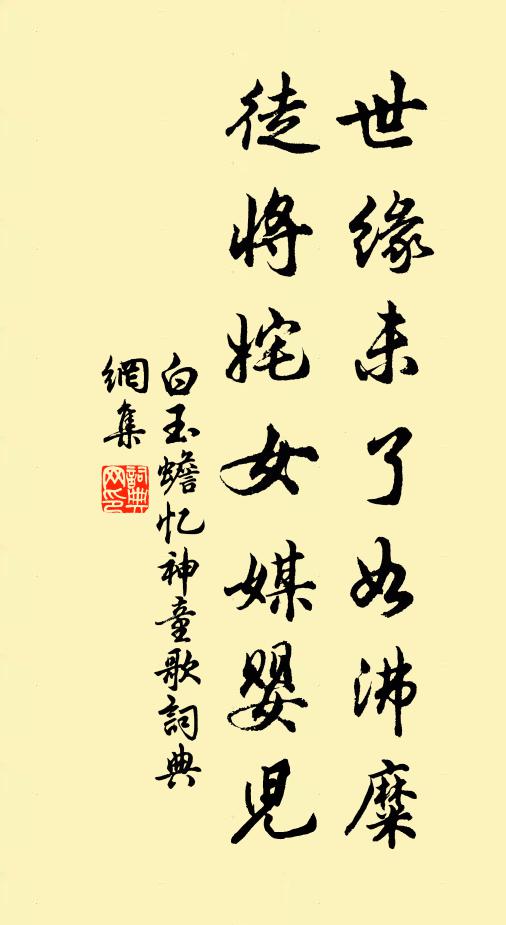 世緣未了如沸糜
徒將姹女媒嬰児
白玉蟾忆神童歌詞典
網集
詞典网印